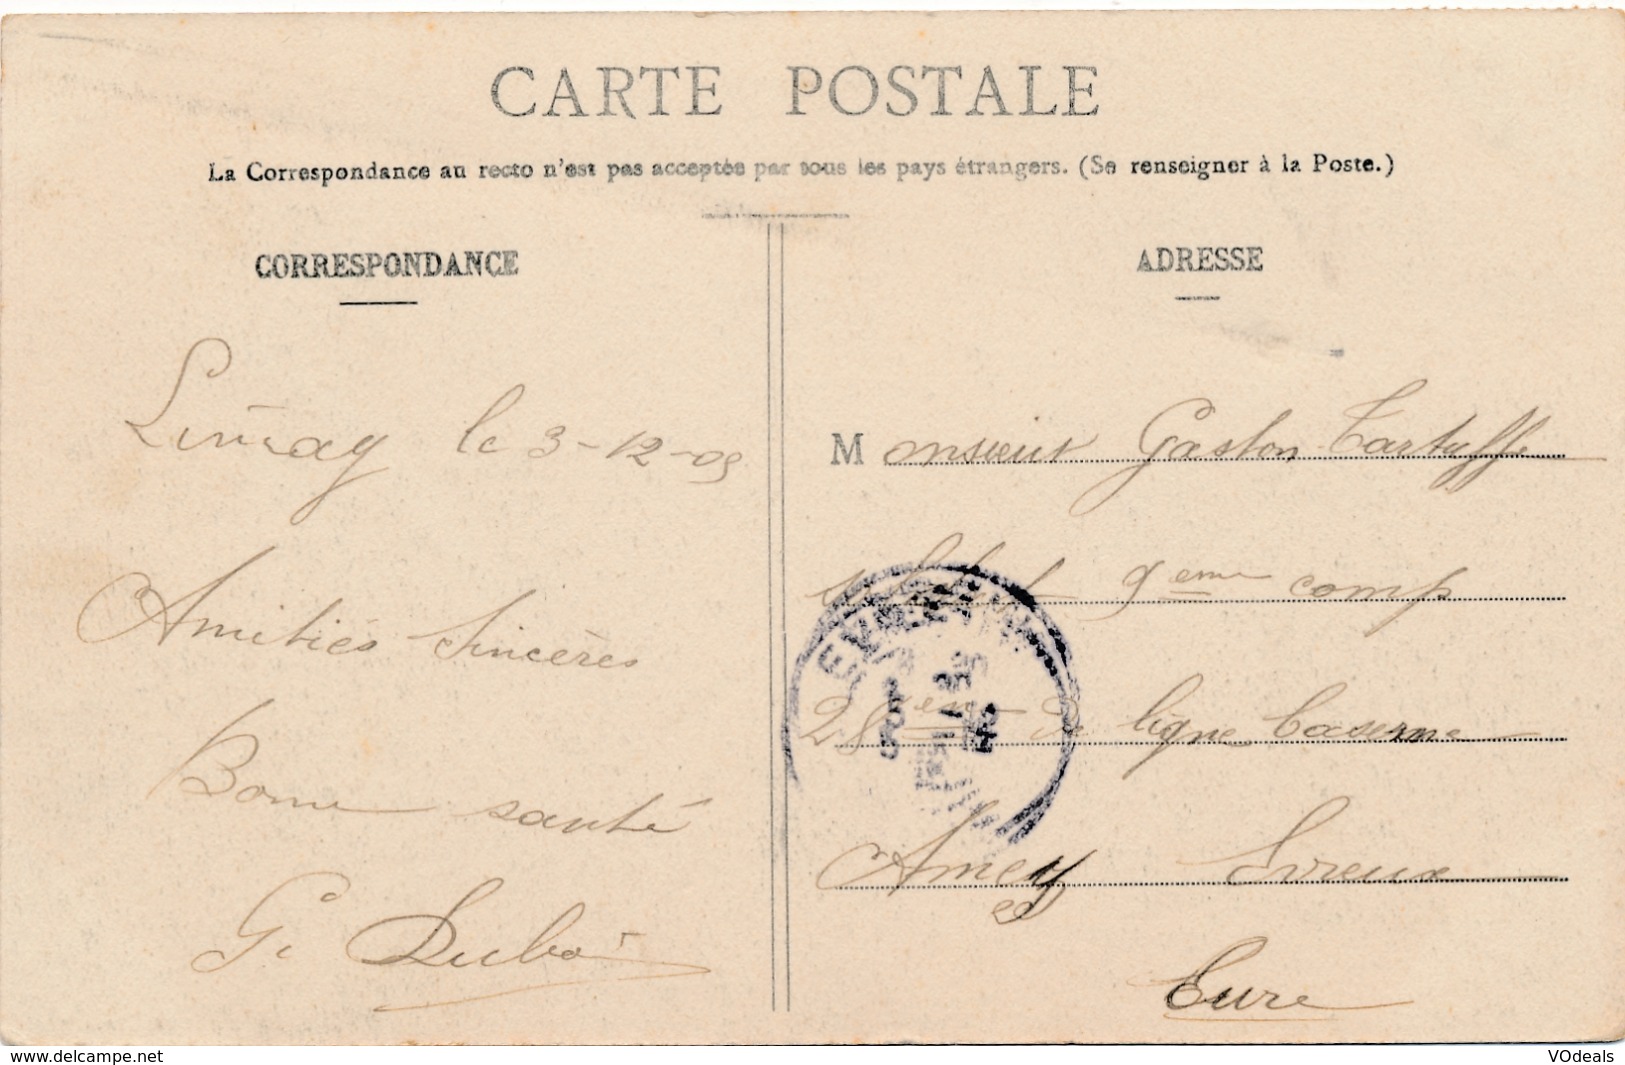 CARTE POSTALE
La Correspondance au recto n'est pas acceptée par tous les pays étrangers. (Se renseigner à la Poste.)
CORRESPONDANCE
le 3-12-09
Amitiés sincères
Bonne santé
G. Dubois
ADRESSE
Monsieur Gaston Tartuffe
9eme comp
28eme de ligne Caserne
Amey Evreux
Eure
EVREUX
www.delcampe.net
VOdeals